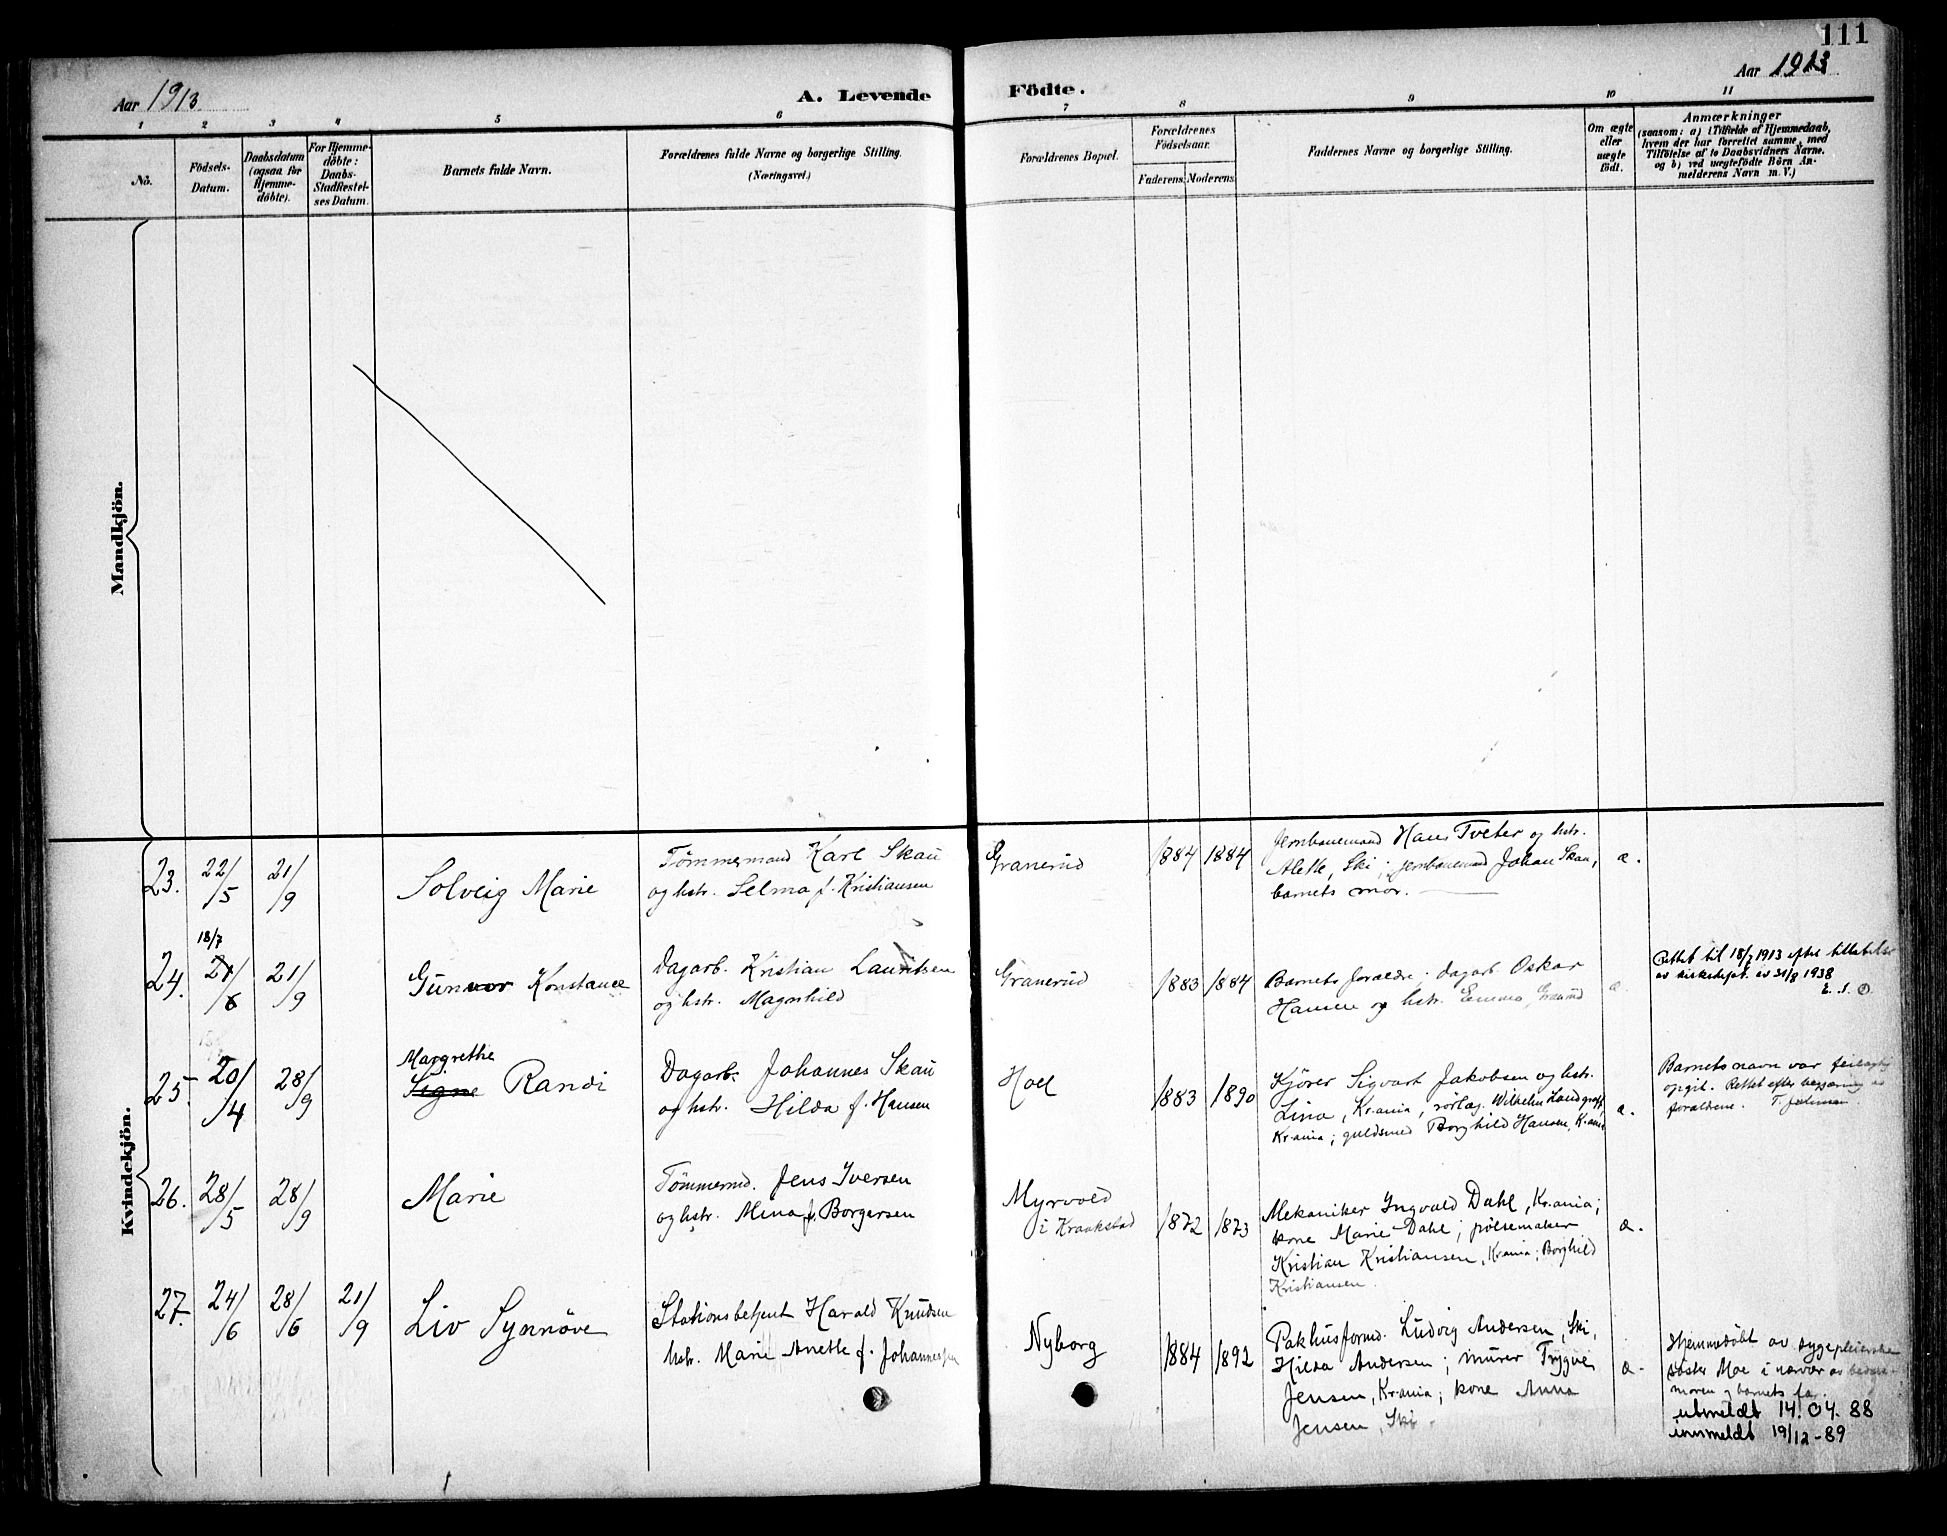 111
Aar 1913
A. Levende Födte.
Aar 1913
1 2 3 4 5 6 7 8 9 10 11
No.
Födsels-
Datum.
Daabsdatum
(ogsaa for
Hjemme-
döbte).
For Hjemme-
döbte:
Daabs-
Stadfæstel-
ses Datum.
Barnets fulde Navn.
Forældrenes fulde Navne og borgerlige Stilling.
(Næringsvei.)
Forældrenes Bopæl.
Forældrenes
Födselsaar.
Faderens. Moderens.
Faddernes Navne og borgerlige Stilling.
Om ægte
eller
uægte
födt.
Anmærkninger
(saasom: a) i Tilfælde af Hjemmedaab,
hvem der har forrettet samme, med
Tilföielse af to Daabsvidners Navne.
og b) ved uægtefödte Börn An-
melderens Navn m. V.)
Mandkjön.
Kvindekjön.
23. 22/5 21/9
Solveig Marie
Tömmermand Karl Skau
og hstr. Selma f. Kristiansen
Granerud
1884 1884
Jernbanemand Hans Tveter og hstr.
Alette, Ski; jernbanemand Johan Skau,
barnets mor.
æ.
18/7
24. 21/6 21/9
Gunvor Konstance
Dagarb. Kristian Lauritsen
og hstr. Magnhild
Granerud
1883 1884
Barnets foraldre; dagarb. Oskar
Hansen og hstr. Emma, Granrud
æ.
Rettet til 18/7 1913 efter tillatelse
av kirkedept. av 31/8 1938
E. S.
25. 20/4 28/9
Margrethe
Signe Randi
Dagarb. Johannes Skau
og hstr. Hilda f. Hansen
Hoel
1883 1890
Kjörer Sigvart Jakobsen og hstr.
Lina, Kr.ania, rörlæg. Wilhelm Landgraff,
Kr.ania; guldsmed Borghild Hansen, Kr.ania
æ.
Barnets navn var feilagtig
opgit. Rettet efter begjæring av
foraldrene.
26. 28/5 28/9
Marie
Tömmermd. Jens Iversen
og hstr. Mina f. Borgersen
Myrvold
i Kraakstad
1872 1873
Mekaniker Ingvald Dahl, Kr.ania;
kone Marie Dahl; pölsemaker
Kristian Kristiansen, Kr.ania; Borghild
Kristiansen.
æ.
27. 24/6 28/6 21/9
Liv Synnöve
Stationsbetjent Harald Knudsen
hstr. Marie Anette f. Johannessen
Nyborg
1884 1892
Pakhusformd. Ludvig Andersen, Ski,
Hilda Andersen; murer Trygve
Jensen, Kr.ania; kone Anna
Jensen, Ski.
æ.
Hjemmedöbt av sygepleierske
söster Moe i nærvær av bedste-
moren og barnets far.
utmeldt 14.04.88
innmeldt 19/12-89